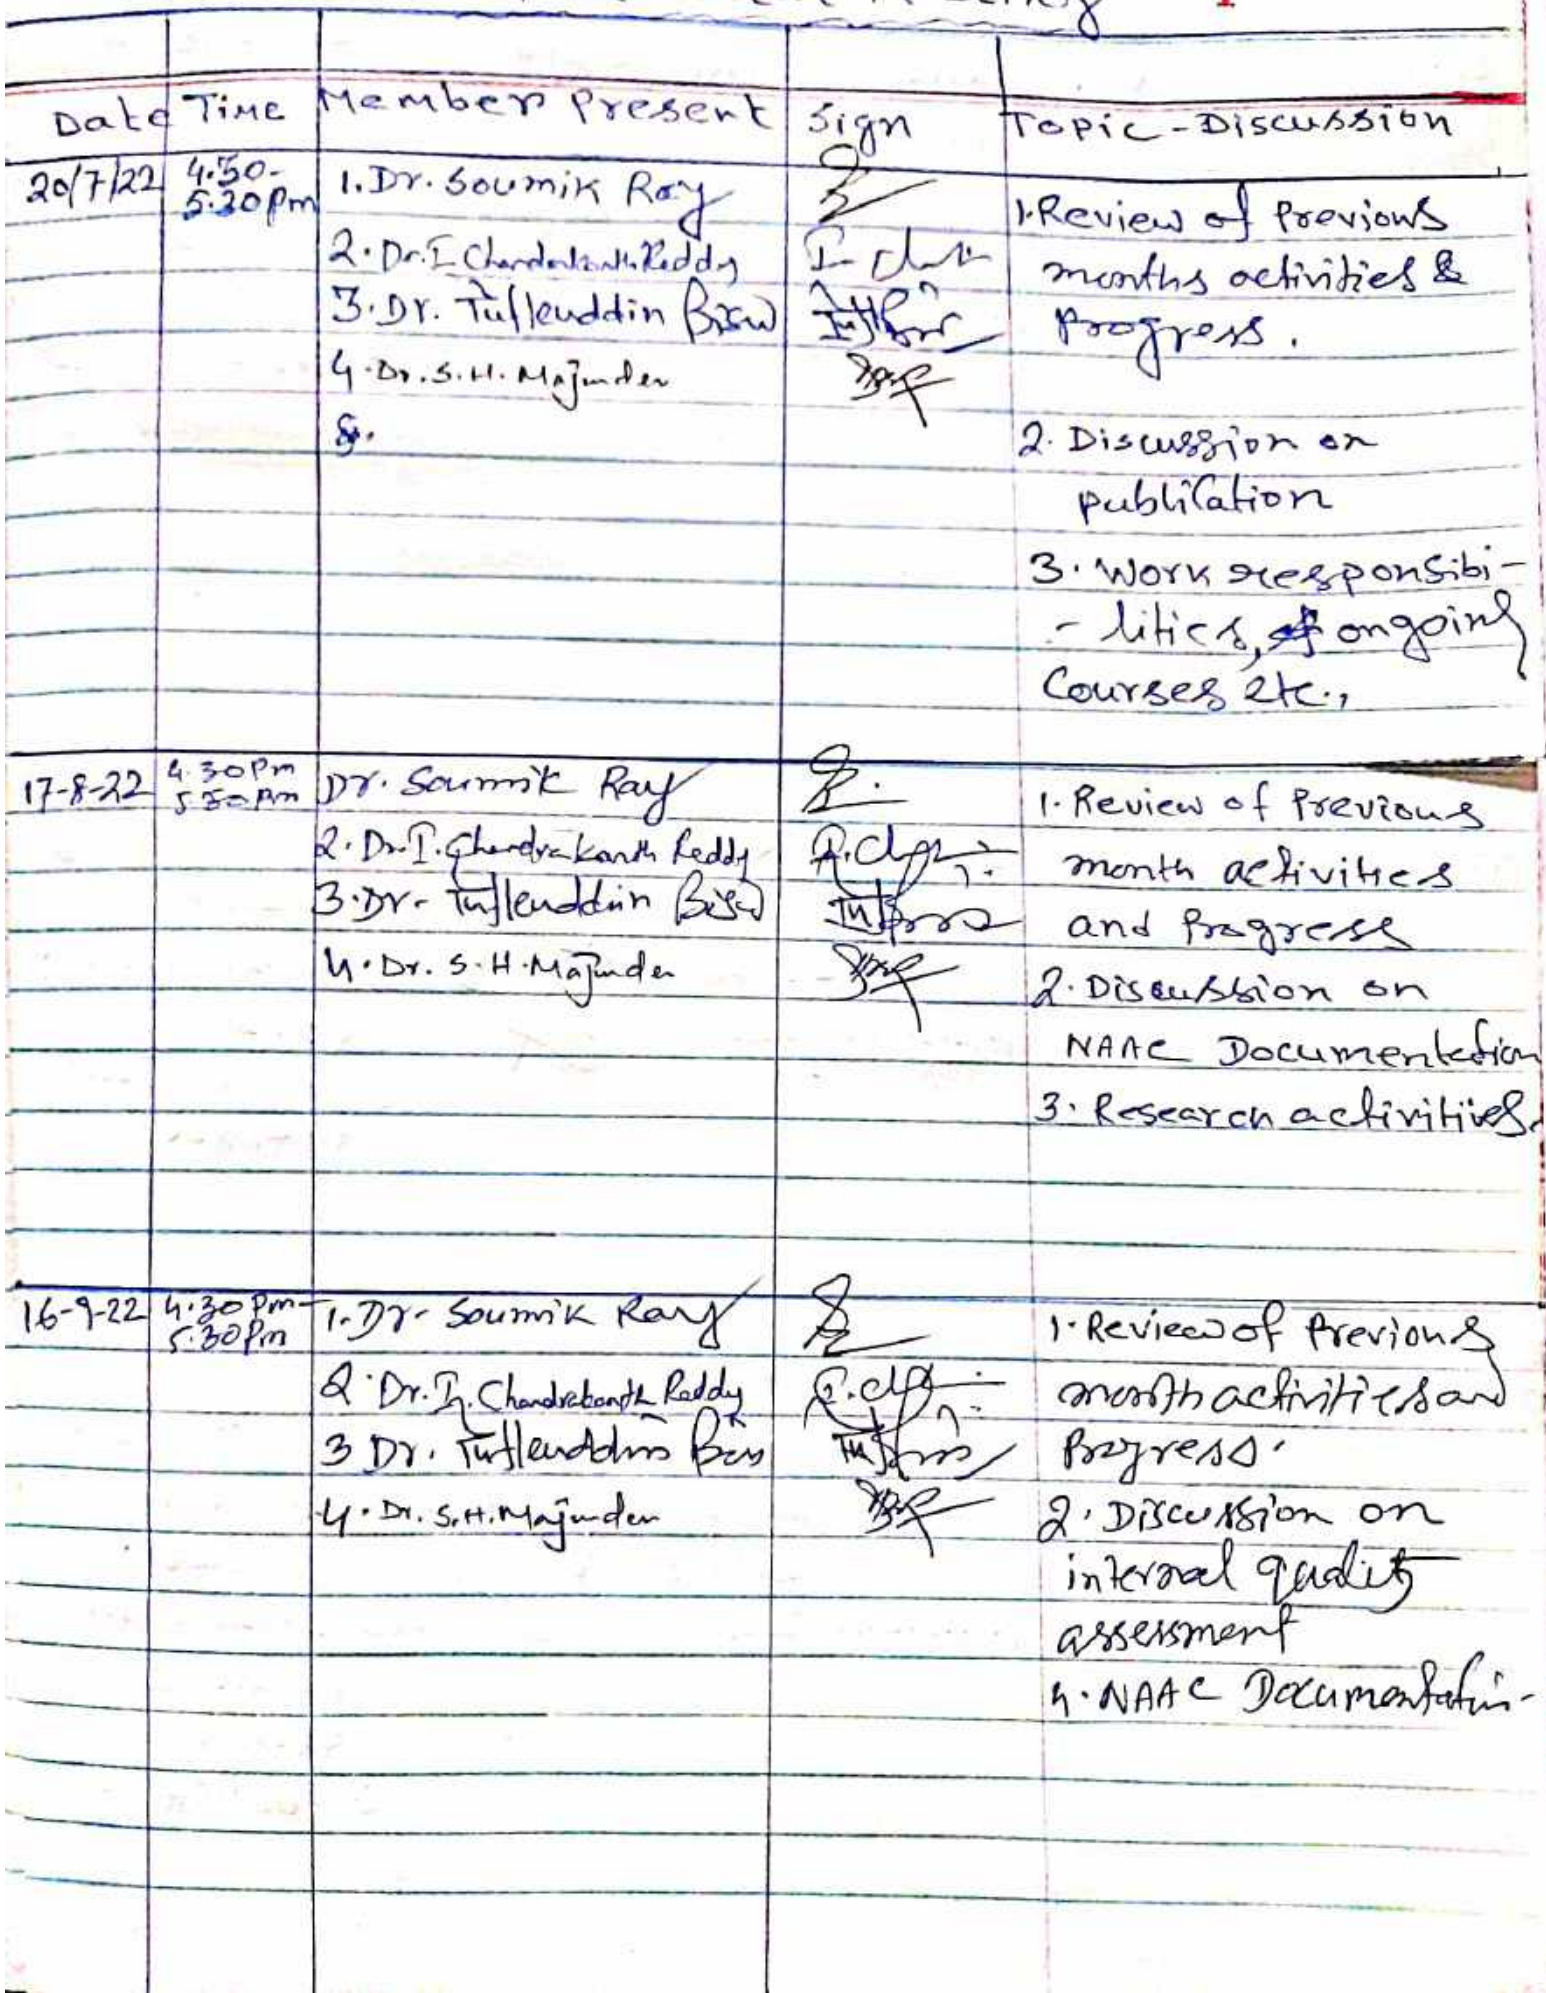 Date Time Member Present Sign Topic-Discussion
20/7/22 4.50-
5.30pm
1. Dr. Soumik Ray
2. Dr. I Chandrakanth Reddy
3. Dr. Tufleuddin Bisw
4. Dr. S. H. Majumder
5.
1. Review of Previous
months activities &
Progress.
2. Discussion on
publication
3. Work responsibi-
- lities, ongoing
Courses etc.,
17-8-22 4.30Pm
5.30Pm
Dr. Soumik Ray
2. Dr. I. Chandrakanth Reddy
3. Dr. Tufleuddin Bisw
4. Dr. S. H. Majumder
1. Review of Previous
month activities
and Progress
2. Discussion on
NAAC Documentation
3. Research activities.
16-9-22 4.30 Pm-
5.30 Pm
1. Dr. Soumik Ray
2. Dr. I. Chandrakanth Reddy
3 Dr. Tufleuddin Bis
4. Dr. S. H. Majumder
1. Review of Previous
month activities and
Progress.
2. Discussion on
internal quality
assessment
4. NAAC Documentation-